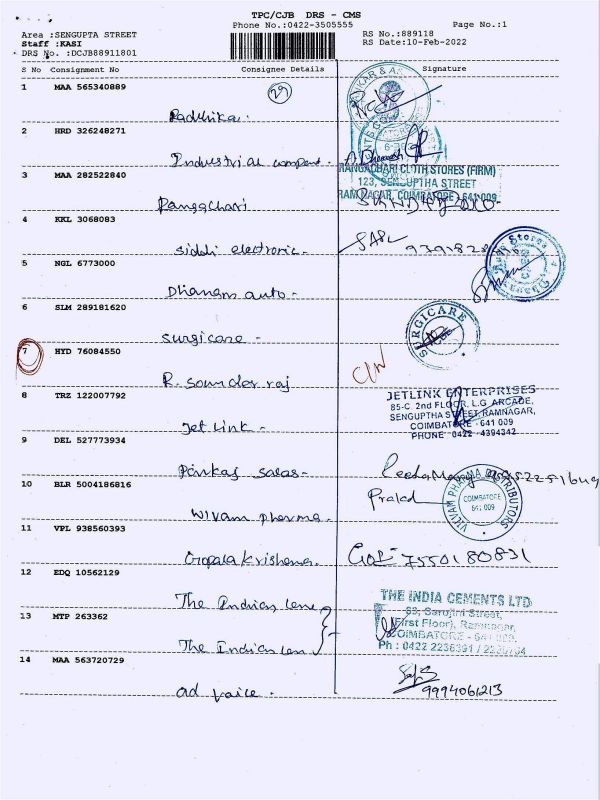 TPC/CJB DRS - CMS
Phone No.:0422-3505555
Page No.:1
Area :SENGUPTA STREET
RS No.:889118
Staff :KASI
RS Date:10-Feb-2022
DRS No. :DCJB88911801
S No Consignment No Consignee Details Signature
29
1 MAA 565340889
Radhika.
2 HRD 326248271
6-36
Industrial component.
RANGACHARI CLOTH STORES (FIRM)
3 MAA 282522840
123, SENGUPTHA STREET
RAMNAGAR, COIMBATORE-641 009
Rangachari
4 KKL 3068083
siddi electronic.
5 NGL 6773000
Dhanam auto -
6 SLM 289181620
SURGICARE
surgicare -
7 HYD 76084550
R. Sounder raj
C/N
8 TRZ 122007792
JETLINK ENTERPRISES
85-C, 2nd FLOOR, L.G. ARCADE,
SENGUPTHA STREET, RAMNAGAR,
COIMBATORE - 641 009
PHONE 0422 - 4394342
Jet Link -
9 DEL 527773934
Pankaj salas -
10 BLR 5004186816
VIVAM PHARMA DISTRIBUTORS
COIMBATORE
641 009
Wivam pharma.
11 VPL 938560393
Gopala krishana.
7550180831
12 EDQ 10562129
The Indian Ceme
THE INDIA CEMENTS LTD
93, Sarojini Street,
(First Floor), Ramnagar,
COIMBATORE - 641 009.
Ph : 0422 2236391 /
13 MTP 263362
The Indian Cem
14 MAA 563720729
ad voice .
9994061213